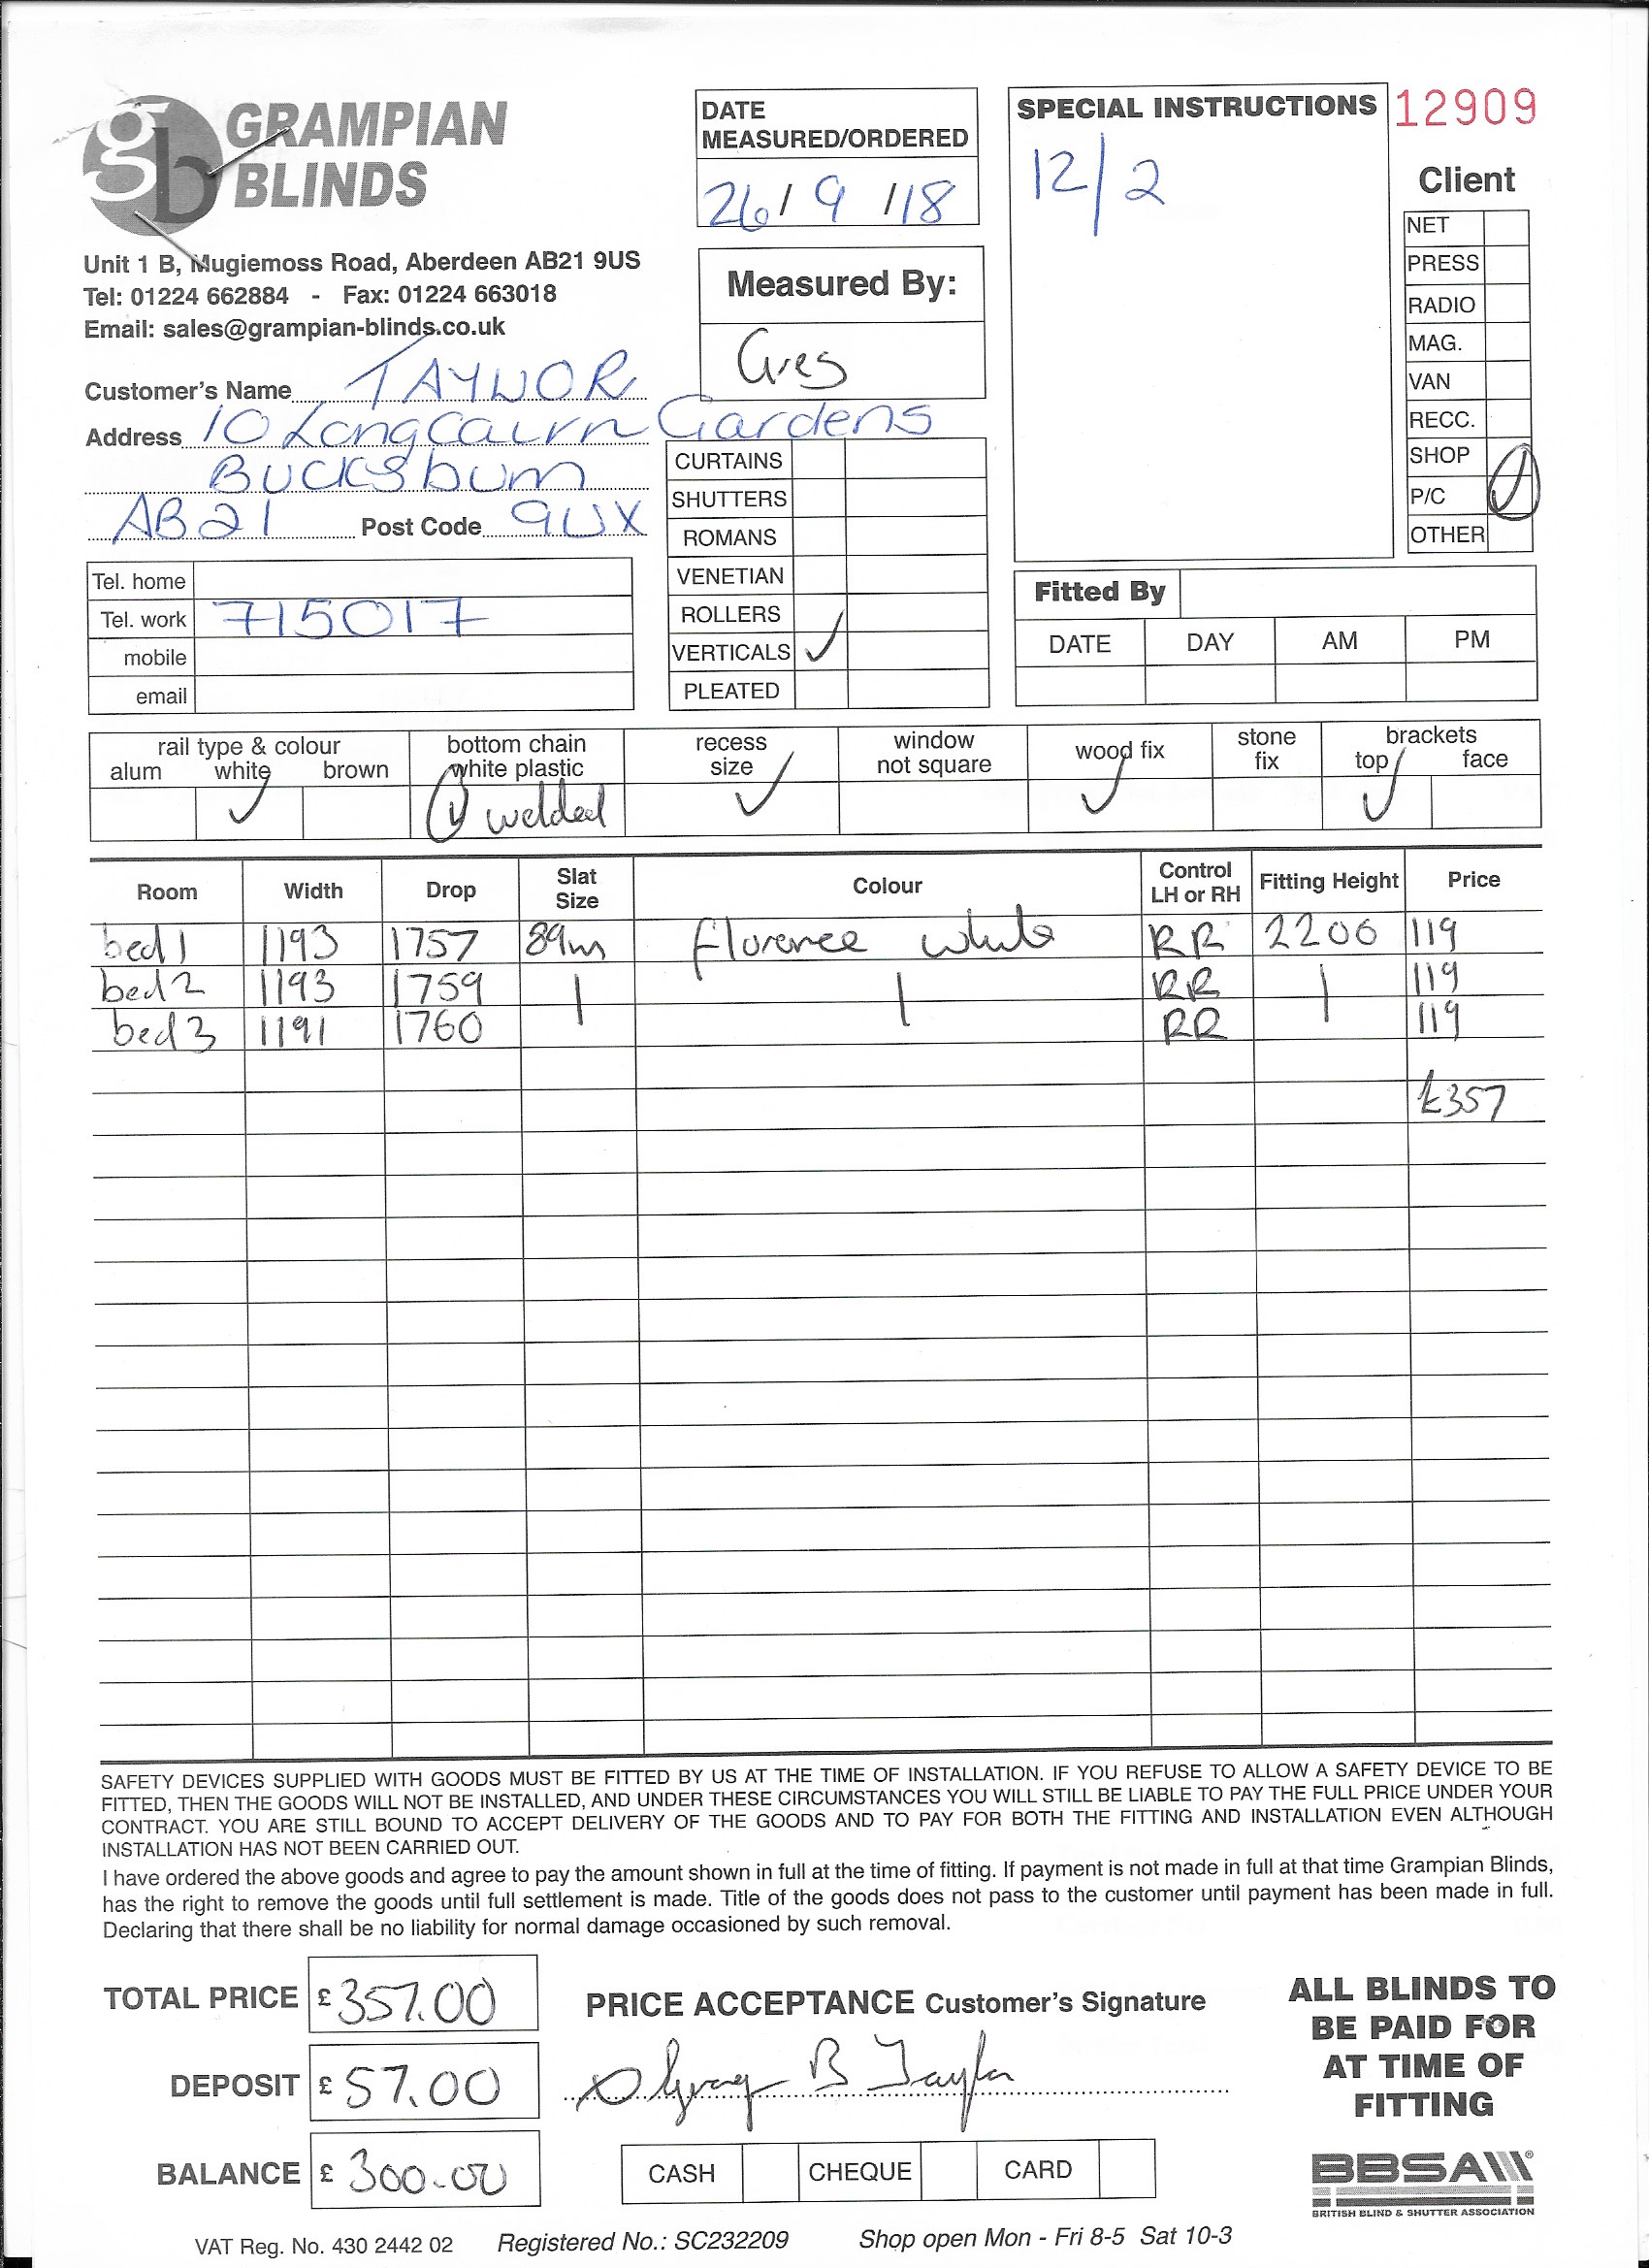 gb GRAMPIAN
BLINDS
Unit 1 B, Mugiemoss Road, Aberdeen AB21 9US
Tel: 01224 662884 - Fax: 01224 663018
Email: sales@grampian-blinds.co.uk
DATE
MEASURED/ORDERED
26/9/18
Measured By:
Greg
SPECIAL INSTRUCTIONS
12/2
12909
Client
NET
PRESS
RADIO
MAG.
VAN
RECC.
SHOP
P/C ✓
OTHER
Customer's Name TAYLOR
Address 10 Longcairn Gardens
Bucksburn
AB21 Post Code 9UX
Tel. home
Tel. work 715017
mobile
email
CURTAINS
SHUTTERS
ROMANS
VENETIAN
ROLLERS
VERTICALS ✓
PLEATED
Fitted By
DATE DAY AM PM
rail type & colour
alum white brown
✓
bottom chain
white plastic
✓ welded
recess
size
✓
window
not square
wood fix
✓
stone
fix
brackets
top face
✓
Room Width Drop Slat Size Colour Control LH or RH Fitting Height Price
bed 1 1193 1757 89m florence white RR 2200 119
bed 2 1193 1759 | | RR | 119
bed 3 1191 1760 RR 119
£357
SAFETY DEVICES SUPPLIED WITH GOODS MUST BE FITTED BY US AT THE TIME OF INSTALLATION. IF YOU REFUSE TO ALLOW A SAFETY DEVICE TO BE
FITTED, THEN THE GOODS WILL NOT BE INSTALLED, AND UNDER THESE CIRCUMSTANCES YOU WILL STILL BE LIABLE TO PAY THE FULL PRICE UNDER YOUR
CONTRACT. YOU ARE STILL BOUND TO ACCEPT DELIVERY OF THE GOODS AND TO PAY FOR BOTH THE FITTING AND INSTALLATION EVEN ALTHOUGH
INSTALLATION HAS NOT BEEN CARRIED OUT.
I have ordered the above goods and agree to pay the amount shown in full at the time of fitting. If payment is not made in full at that time Grampian Blinds,
has the right to remove the goods until full settlement is made. Title of the goods does not pass to the customer until payment has been made in full.
Declaring that there shall be no liability for normal damage occasioned by such removal.
TOTAL PRICE £ 357.00
DEPOSIT £ 57.00
BALANCE £ 300.00
PRICE ACCEPTANCE Customer's Signature
B Taylor
CASH CHEQUE CARD
ALL BLINDS TO
BE PAID FOR
AT TIME OF
FITTING
BBSA®
BRITISH BLIND & SHUTTER ASSOCIATION
VAT Reg. No. 430 2442 02 Registered No.: SC232209 Shop open Mon - Fri 8-5 Sat 10-3